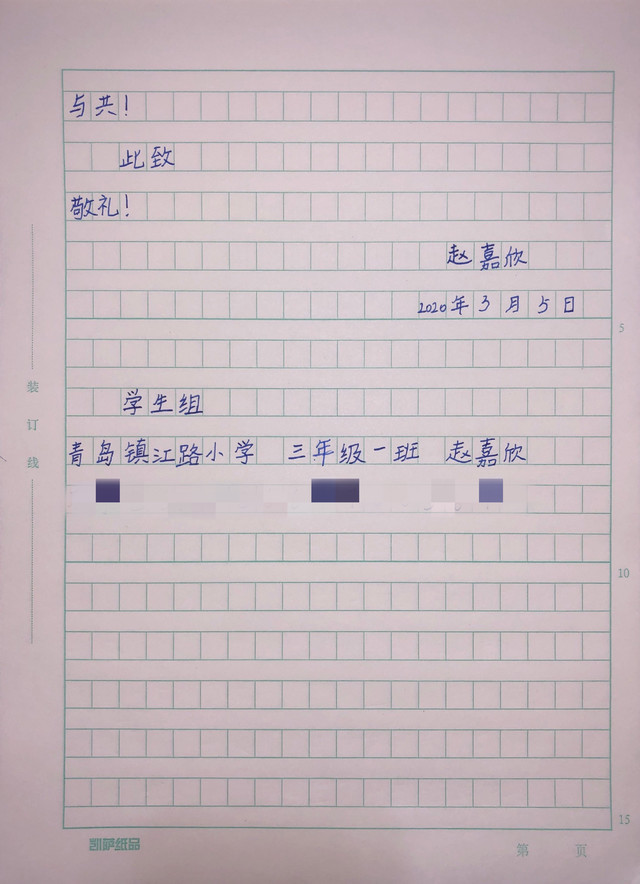 与共！
此致
敬礼！
赵嘉欣
2020年3月5日
5
装
订
线
学生组
青岛镇江路小学 三年级一班 赵嘉欣
10
15
凯萨纸品
第 页